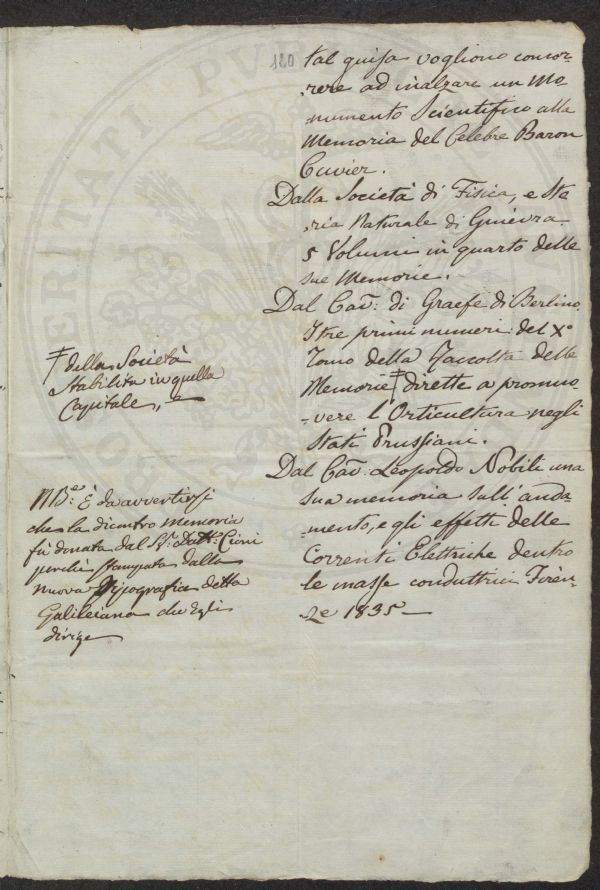 120
tal guisa vogliono concor-
-rere ad inalzare un Mo
numento Scientifico alla
Memoria del Celebre Baron
Cuvier.
Dalla Società di Fisica, e Sto
-ria Naturale di Ginevra
5 Volumi in quarto delle
sue Memorie.
Dal Cav: di Graefe di Berlino
I tre primi numeri del X°
Tomo della Raccolta delle
Memorie ‡ dirette a promuo
-vere l'Orticultura negli
Stati Prussiani.
Dal Cav: Leopoldo Nobili una
sua memoria sull'anda-
-mento, e gli effetti delle
Correnti Elettriche dentro
le masse conduttrici Firen-
ze 1835 —
‡ della Società
stabilita in quella
Capitale, e
NB: È da avvertirsi
che la dicontro memoria
fù donata dal Sr. Dott: Cioni
perchè stampata dalla
nuova Tipografia detta
Galileiana che Egli
dirige